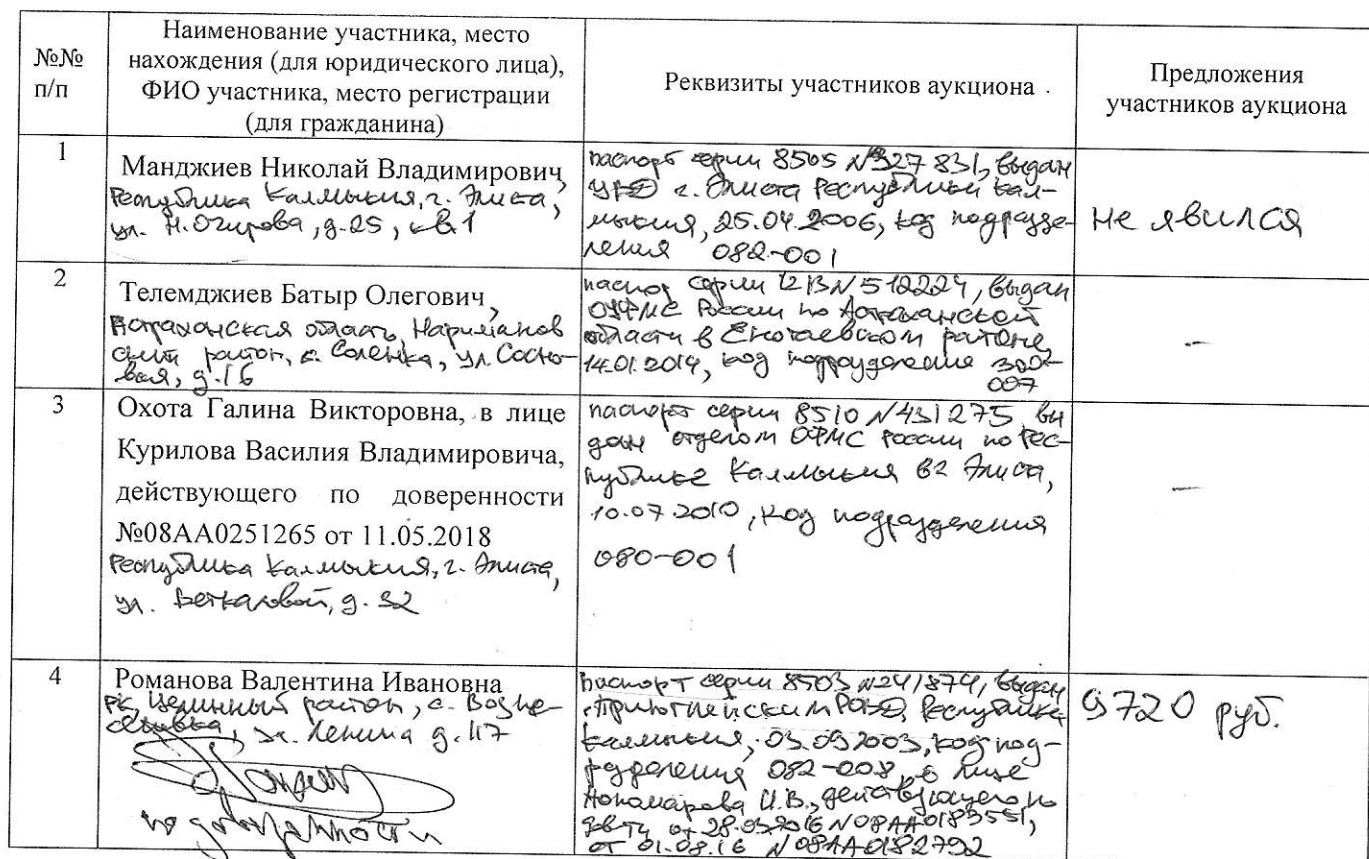 №№
п/п
Наименование участника, место
нахождения (для юридического лица),
ФИО участника, место регистрации
(для гражданина)
Реквизиты участников аукциона
Предложения
участников аукциона
1
Манджиев Николай Владимирович,
Республика Калмыкия, г. Элиста,
ул. Н. Очирова, д. 25, кв. 1
паспорт серии 8505 №327831, выдан
г. Элиста Республики Кал-
мыкия, 25.04.2006, код подразде-
ления 082-001
не явился
2
Телемджиев Батыр Олегович,
Астраханская область, Нариманов
ский район, с. Солянка, ул. Сосно-
вая, д. 16
серии 12 13 № 512224, выдан
ОУФМС России по Астраханской
области в Енотаевском районе,
14.01.2014, код подразделения 300-
007
-
3
Охота Галина Викторовна, в лице
Курилова Василия Владимировича,
действующего по доверенности
№08АА0251265 от 11.05.2018
Республика Калмыкия, г. Элиста,
ул. д. 32
паспорт серии 8510 №431275 вы
дан отделом ОФМС России по Рес-
публике Калмыкия в г Элиста,
10.07.2010, код подразделения
080-001
-
4
Романова Валентина Ивановна
РК, Целинный район, с. Возне-
сеновка, ул. Ленина д. 117
по доверенности
паспорт серии 8503 №241874, выдан
Приютненским РОВД Республика
Калмыкия, 03.09.2003, код под-
разделения 082-008, в лице
Пономарева И.В., действующего по
дов-ти от 28.03.2016 №08АА0183551,
от 01.08.16 №08АА0182792
9720 руб.